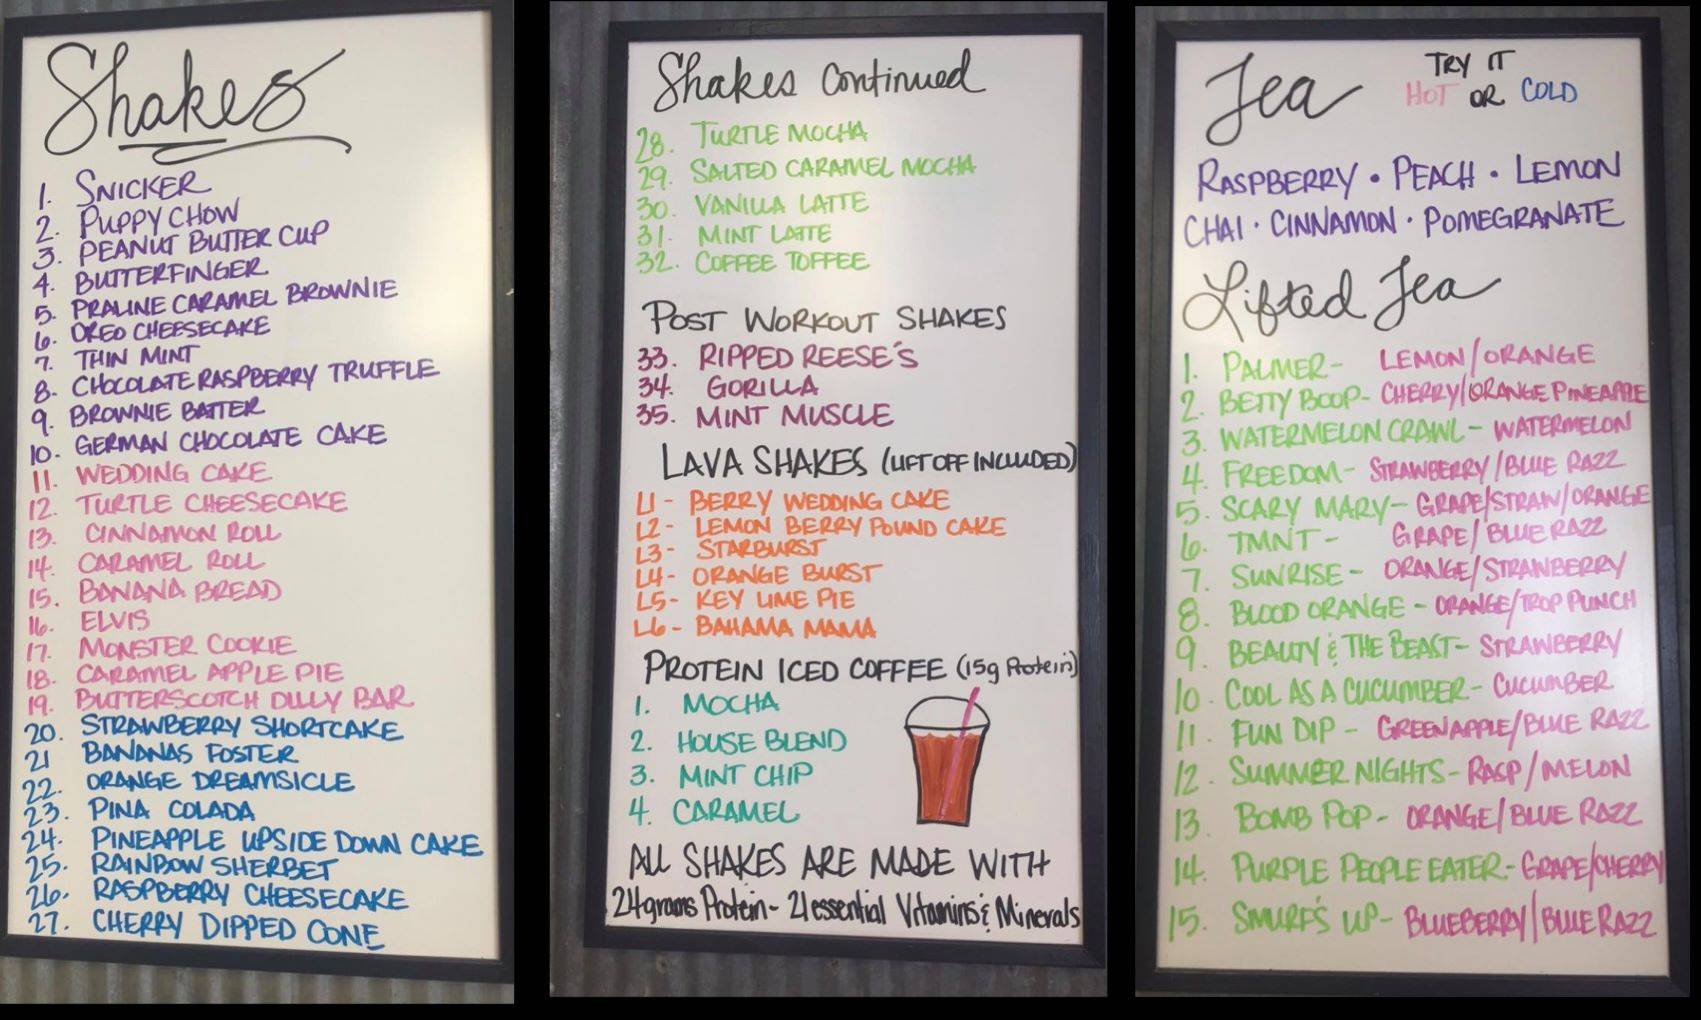 Shakes
1. SNICKER
2. PUPPY CHOW
3. PEANUT BUTTER CUP
4. BUTTERFINGER
5. PRALINE CARAMEL BROWNIE
6. OREO CHEESECAKE
7. THIN MINT
8. CHOCOLATE RASPBERRY TRUFFLE
9. BROWNIE BATTER
10. GERMAN CHOCOLATE CAKE
11. WEDDING CAKE
12. TURTLE CHEESECAKE
13. CINNAMON ROLL
14. CARAMEL ROLL
15. BANANA BREAD
16. ELVIS
17. MONSTER COOKIE
18. CARAMEL APPLE PIE
19. BUTTERSCOTCH DILLY BAR
20. STRAWBERRY SHORTCAKE
21 BANANAS FOSTER
22. ORANGE DREAMSICLE
23. PINA COLADA
24. PINEAPPLE UPSIDE DOWN CAKE
25. RAINBOW SHERBET
26. RASPBERRY CHEESECAKE
27. CHERRY DIPPED CONE
Shakes Continued
28. TURTLE MOCHA
29. SALTED CARAMEL MOCHA
30. VANILLA LATTE
31. MINT LATTE
32. COFFEE TOFFEE
POST WORKOUT SHAKES
33. RIPPED REESE'S
34. GORILLA
35. MINT MUSCLE
LAVA SHAKES (LIFTOFF INCLUDED)
L1 - BERRY WEDDING CAKE
L2 - LEMON BERRY POUND CAKE
L3 - STARBURST
L4 - ORANGE BURST
L5 - KEY LIME PIE
L6 - BAHAMA MAMA
PROTEIN ICED COFFEE (15g Protein)
1. MOCHA
2. HOUSE BLEND
3. MINT CHIP
4. CARAMEL
ALL SHAKES ARE MADE WITH
24grams Protein - 21 essential Vitamins & Minerals
Tea
TRY IT
HOT OR COLD
RASPBERRY • PEACH • LEMON
CHAI • CINNAMON • POMEGRANATE
Lifted Tea
1. PALMER - LEMON/ORANGE
2. BETTY BOOP - CHERRY/ORANGE PINEAPPLE
3. WATERMELON CRAWL - WATERMELON
4. FREEDOM - STRAWBERRY/BLUE RAZZ
5. SCARY MARY - GRAPE/STRAW/ORANGE
6. TMNT - GRAPE/BLUE RAZZ
7. SUNRISE - ORANGE/STRAWBERRY
8. BLOOD ORANGE - ORANGE/TROP PUNCH
9. BEAUTY & THE BEAST - STRAWBERRY
10. COOL AS A CUCUMBER - CUCUMBER
11. FUN DIP - GREEN APPLE/BLUE RAZZ
12. SUMMER NIGHTS - RASP/MELON
13. BOMB POP - ORANGE/BLUE RAZZ
14. PURPLE PEOPLE EATER - GRAPE/CHERRY
15. SMURF'S UP - BLUEBERRY/BLUE RAZZ